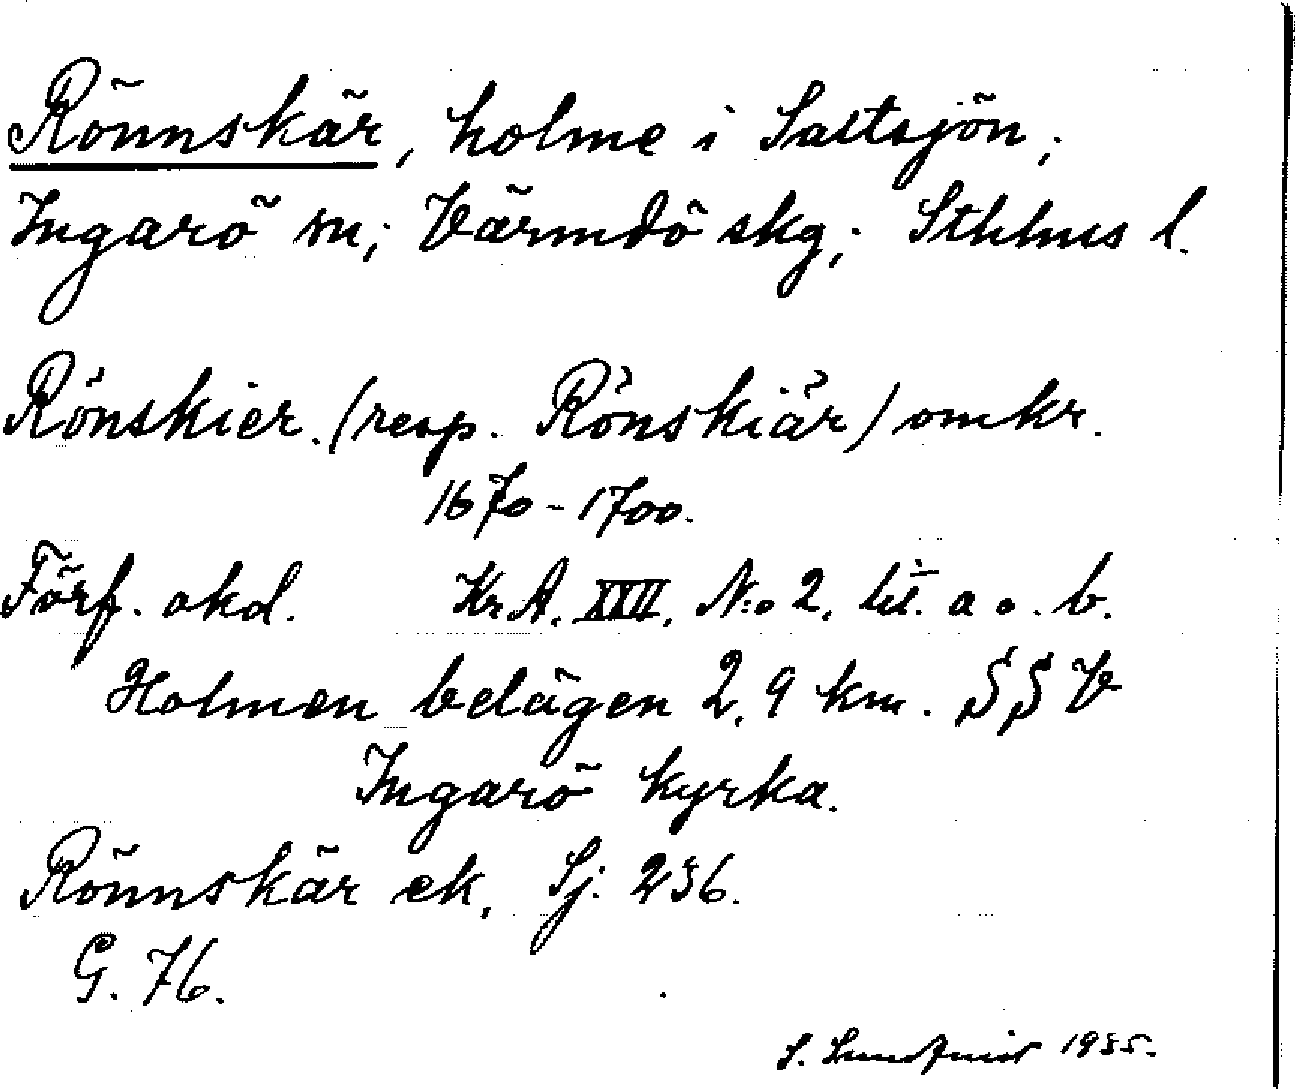 Rönnskär, holme i Saltsjön;
Ingarö sn; Värmdö skg; Sthlms l.
Rönskier. (resp. Rönskiär) omkr.
1670-1700.
Förf. okd. Kr.A. XXII. N:o 2. lit. a o. b.
Holmen belägen 2,9 km. SSV
Ingarö kyrka.
Rönnskär ek. Sj. 236.
G. 76.
S. 1935.